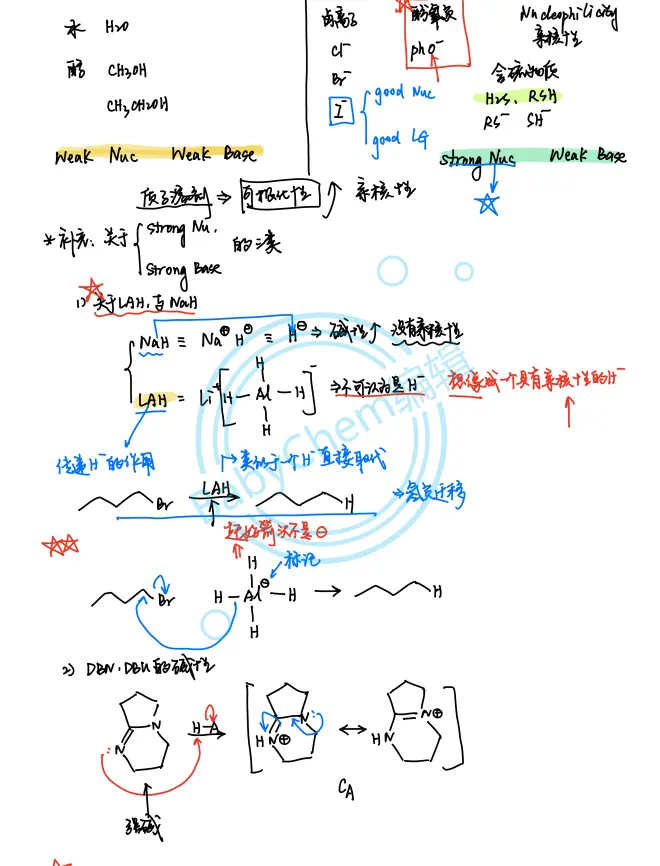 水 H2O
醇 CH3OH
CH3CH2OH
Weak Nuc Weak Base
卤离子
Cl⁻
Br⁻
I⁻
good Nuc
good LG
酚氧负
phO⁻
Nucleophilicity
亲核性
含硫物质
H2S、RSH
RS⁻ SH⁻
strong Nuc Weak Base
质子溶剂 ⇒ 可极化性 ↑ 亲核性
*补充:关于 strong Nu. 的
strong Base
1) 关于LAH,与NaH
NaH ≡ Na⊕ H⊖ ≡ H⊖ ⇒ 碱性↑ 没有亲核性
LAH ≡ Li⁺ [H-Al-H]⁻ ⇒ 不可认为是H⁻ 想像成一个具有亲核性的H⁻
H
H
传递H⁻的作用
类似于一个H⁻直接取代
Br LAH H ⇒ 氢负迁移
起始箭头不是⊖
标记
Br H-Al⊖-H H
H
H
2) DBN、DBU的碱性
N N: H-A H N⊕ N: ↔ H N N⊕
CA
强碱
BabyChem编辑